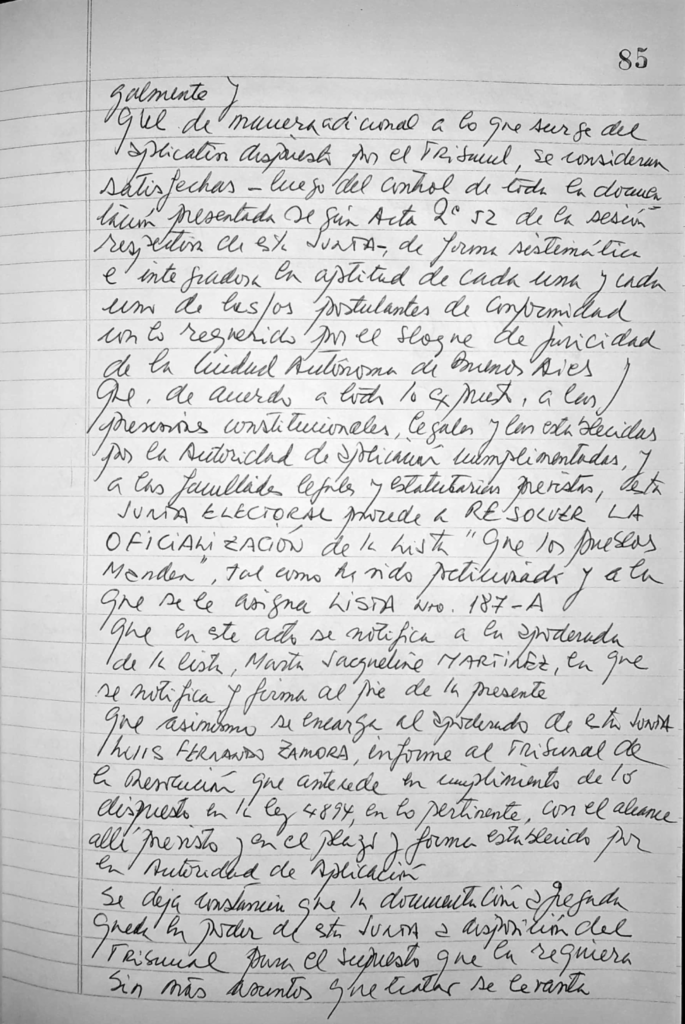 85
galmente y
Que de manera adicional a lo que surge del
aplicativo dispuesto por el TRIBUNAL, se consideran
satisfechas - luego del control de toda la documen
tación presentada según Acta 2° 52 de la sesión
respectiva de esta JUNTA-, de forma sistemática
e integradora la aptitud de cada una y cada
uno de las/os postulantes de conformidad
con lo requerido por el Bloque de juricidad
de la Ciudad Autónoma de Buenos Aires y
Que, de acuerdo a todo lo expuesto, a las
previsiones constitucionales, legales y las establecidas
por la Autoridad de aplicación cumplimentadas, y
a las facultades legales y estatutarias previstas, esta
JUNTA ELECTORAL procede a RESOLVER LA
OFICIALIZACIÓN de la Lista "Que los pueblos
Manden", tal como ha sido peticionado y a la
que se le asigna LISTA Nro. 187-A
Que en este acto se notifica a la apoderada
de la lista, Marta Jacqueline MARTINEZ, la que
se notifica y firma al pie de la presente
Que asimismo se encarga al apoderado de esta JUNTA
LUIS FERNANDO ZAMORA, informe al TRIBUNAL de
la Resolución que antecede en cumplimiento de lo
dispuesto en la ley 4894, en lo pertinente, con el alcance
allí previsto y en el plazo y forma establecido por
la Autoridad de Aplicación
Se deja constancia que la documentación agregada
queda en poder de esta JUNTA a disposición del
TRIBUNAL para el supuesto que la requiera
Sin más asuntos que tratar se levanta